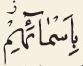 بِاَسْمَآئِهِمْ